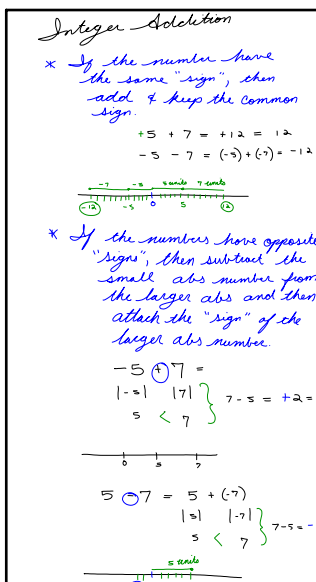 Integer Addition
* If the number have
the same "sign", then
add & keep the common
sign.
+5 + 7 = +12 = 12
-5 - 7 = (-5) + (-7) = -12
-7 -5 5 units 7 units
-12 -5 0 5 12
* If the numbers have opposite
"signs", then subtract the
small abs number from
the larger abs and then
attach the "sign" of the
larger abs number.
-5 + 7 =
|-5| |7|
7 - 5 = +2 =
5 < 7
0 5 7
5 - 7 = 5 + (-7)
|5| |-7|
7 - 5 = -
5 < 7
5 units